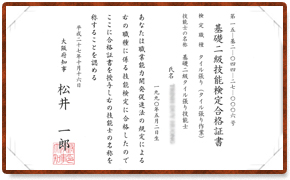 第一五-基二-〇四四-二七-〇〇〇六号
基礎二級技能検定合格証書
検定職種 タイル張り(タイル張り作業)
技能士の名称 基礎二級タイル張り技能士
氏名
一九九〇年五月二日生
あなたは職業能力開発促進法の規定による
右の職種に係る技能検定に合格したので
ここに合格証書を授与し右の技能士の名称を
称することを認める
平成二十七年十月十六日
大阪府知事 松井 一郎